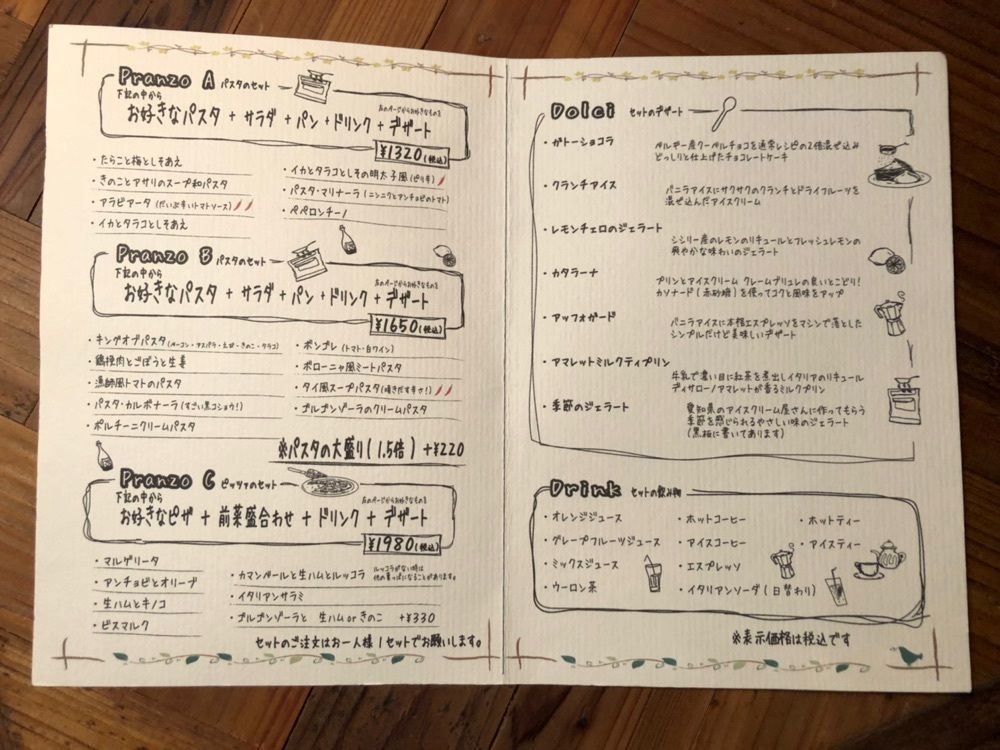 Pranzo A パスタのセット
下記の中から
右のページからお好きなものを
お好きなパスタ + サラダ + パン + ドリンク + デザート
¥1320(税込)
・たらこと梅としそあえ
・きのことアサリのスープ和パスタ
・アラビアータ(だいぶ辛いトマトソース)
・イカとタラコとしそあえ
・イカとタラコとしその明太子風(ピリ辛)
・パスタ・マリナーラ(ニンニクとアンチョビのトマト)
・ペペロンチーノ
Pranzo B パスタのセット
下記の中から
右のページからお好きなものを
お好きなパスタ + サラダ + パン + ドリンク + デザート
¥1650(税込)
・キングオブパスタ(ベーコン・アスパラ・エビ・きのこ・タラコ)
・鶏挽肉とごぼうと生姜
・漁師風トマトのパスタ
・パスタ・カルボナーラ(すごい黒コショウ!)
・ポルチーニクリームパスタ
・ボンゴレ(トマト・白ワイン)
・ボローニャ風ミートパスタ
・タイ風スープパスタ(噴きだす辛さ!)
・ゴルゴンゾーラのクリームパスタ
※パスタの大盛り(1.5倍) +¥220
Pranzo C ピッツァのセット
下記の中から
右のページからお好きなものを
お好きなピザ + 前菜盛合わせ + ドリンク + デザート
¥1980(税込)
・マルゲリータ
・アンチョビとオリーブ
・生ハムとキノコ
・ビスマルク
・カマンベールと生ハムとルッコラ ルッコラがない時は
他の葉っぱになることがあります。
・イタリアンサラミ
・ゴルゴンゾーラと 生ハム or きのこ +¥330
セットのご注文はお一人様1セットでお願いします。
Dolci セットのデザート
・ガトーショコラ
ベルギー産クーベルチョコを通常レシピの2倍混ぜ込み
どっしりと仕上げたチョコレートケーキ
・クランチアイス
バニラアイスにサクサクのクランチとドライフルーツを
混ぜ込んだアイスクリーム
・レモンチェロのジェラート
シシリー産のレモンのリキュールとフレッシュレモンの
爽やかな味わいのジェラート
・カタラーナ
プリンとアイスクリーム クレームブリュレの良いとこどり!
カソナード(赤砂糖)を使ってコクと風味をアップ
・アッフォガード
バニラアイスに本格エスプレッソをマシンで落とした
シンプルだけど美味しいデザート
・アマレットミルクティプリン
牛乳で濃い目に紅茶を煮出しイタリアのリキュール
ディサローノアマレットが香るミルクプリン
・季節のジェラート
愛知県のアイスクリーム屋さんに作ってもらう
季節を感じられるやさしい味のジェラート
(黒板に書いてあります)
Drink セットの飲み物
・オレンジジュース
・グレープフルーツジュース
・ミックスジュース
・ウーロン茶
・ホットコーヒー
・アイスコーヒー
・エスプレッソ
・イタリアンソーダ(日替わり)
・ホットティー
・アイスティー
※表示価格は税込です